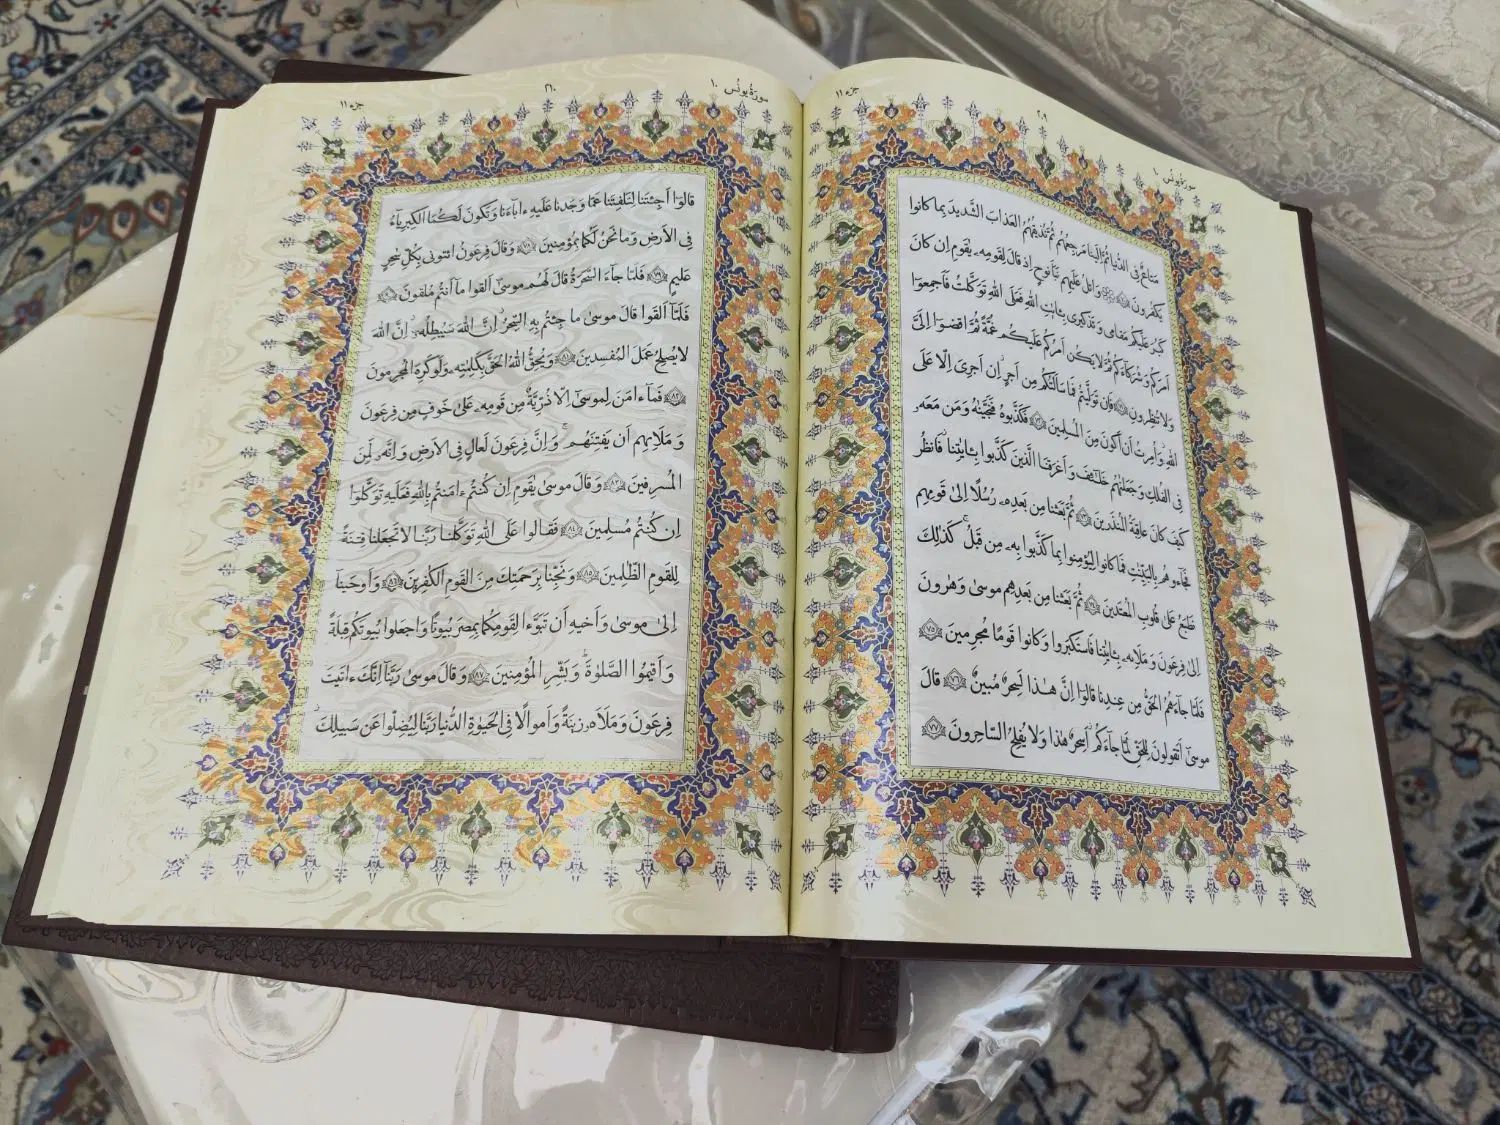 سورة يونس ١٠
٢٠٩
جزء ١١
مَتاعٌ فِى الدُّنيا ثُمَّ إِلَينا مَرجِعُهُم ثُمَّ نُذيقُهُمُ العَذابَ الشَّديدَ بِما كانوا
يَكفُرونَ ﴿٧٠﴾ وَاتلُ عَلَيهِم نَبَأَ نوحٍ إِذ قالَ لِقَومِهِۦ يٰقَومِ اِن كانَ
كَبُرَ عَلَيكُم مَقامى وَ تَذكيرى بِـٔايٰتِ اللهِ فَعَلَى اللهِ تَوَكَّلتُ فَاَجمِعوٓا
اَمرَكُم وَ شُرَكآءَكُم ثُمَّ لا يَكُن اَمرُكُم عَلَيكُم غُمَّةً ثُمَّ اقضوٓا اِلَىَّ
وَلا تُنظِرونِ ﴿٧١﴾ فَاِن تَوَلَّيتُم فَما سَاَلتُكُم مِن اَجرٍ ۖ اِن اَجرِىَ اِلّا عَلَى
اللهِ ۖ وَ اُمِرتُ اَن اَكونَ مِنَ المُسلِمينَ ﴿٧٢﴾ فَكَذَّبوهُ فَنَجَّينٰهُ وَ مَن مَعَهُۥ
فِى الفُلكِ وَ جَعَلنٰهُم خَلٰٓئِفَ وَ اَغرَقنَا الَّذينَ كَذَّبوا بِـٔايٰتِنا ۖ فَانظُر
كَيفَ كانَ عاقِبَةُ المُنذَرينَ ﴿٧٣﴾ ثُمَّ بَعَثنا مِن بَعدِهِۦ رُسُلًا اِلىٰ قَومِهِم
فَجآءوهُم بِالبَيِّنٰتِ فَما كانوا لِيُؤمِنوا بِما كَذَّبوا بِهِۦ مِن قَبلُ ۚ كَذٰلِكَ
نَطبَعُ عَلىٰ قُلوبِ المُعتَدينَ ﴿٧٤﴾ ثُمَّ بَعَثنا مِن بَعدِهِم موسىٰ وَ هٰرونَ
اِلىٰ فِرعَونَ وَ مَلَإِيهِۦ بِـٔايٰتِنا فَاستَكبَروا وَ كانوا قَومًا مُجرِمينَ ﴿٧٥﴾
فَلَمّا جآءَهُمُ الحَقُّ مِن عِندِنا قالوٓا اِنَّ هٰذا لَسِحرٌ مُبينٌ ﴿٧٦﴾ قالَ
موسىٰٓ اَتَقولونَ لِلحَقِّ لَمّا جآءَكُم ۖ اَسِحرٌ هٰذا وَلا يُفلِحُ السّاحِرونَ ﴿٧٧﴾
سورة يونس ١٠
٢١٠
جزء ١١
قالوٓا اَجِئتَنا لِتَلفِتَنا عَمّا وَجَدنا عَلَيهِ ءابآءَنا وَ تَكونَ لَكُمَا الكِبرِيآءُ
فِى الاَرضِ وَ ما نَحنُ لَكُما بِمُؤمِنينَ ﴿٧٨﴾ وَ قالَ فِرعَونُ ائتونى بِكُلِّ سٰحِرٍ
عَليمٍ ﴿٧٩﴾ فَلَمّا جآءَ السَّحَرَةُ قالَ لَهُم موسىٰٓ اَلقوا مآ اَنتُم مُلقونَ ﴿٨٠﴾
فَلَمّآ اَلقَوا قالَ موسىٰ ما جِئتُم بِهِ السِّحرُ ۖ اِنَّ اللهَ سَيُبطِلُهُۥٓ ۖ اِنَّ اللهَ
لا يُصلِحُ عَمَلَ المُفسِدينَ ﴿٨١﴾ وَ يُحِقُّ اللهُ الحَقَّ بِكَلِمٰتِهِۦ وَلَو كَرِهَ المُجرِمونَ
﴿٨٢﴾ فَمآ ءامَنَ لِموسىٰٓ اِلّا ذُرِّيَّةٌ مِن قَومِهِۦ عَلىٰ خَوفٍ مِن فِرعَونَ
وَ مَلَإِيهِم اَن يَفتِنَهُم ۚ وَ اِنَّ فِرعَونَ لَعالٍ فِى الاَرضِ وَ اِنَّهُۥ لَمِنَ
المُسرِفينَ ﴿٨٣﴾ وَ قالَ موسىٰ يٰقَومِ اِن كُنتُم ءامَنتُم بِاللهِ فَعَلَيهِ تَوَكَّلوٓا
اِن كُنتُم مُسلِمينَ ﴿٨٤﴾ فَقالوا عَلَى اللهِ تَوَكَّلنا رَبَّنا لا تَجعَلنا فِتنَةً
لِلقَومِ الظّٰلِمينَ ﴿٨٥﴾ وَ نَجِّنا بِرَحمَتِكَ مِنَ القَومِ الكٰفِرينَ ﴿٨٦﴾ وَ اَوحَينآ
اِلىٰ موسىٰ وَ اَخيهِ اَن تَبَوَّءا لِقَومِكُما بِمِصرَ بُيوتًا وَ اجعَلوا بُيوتَكُم قِبلَةً
وَ اَقيمُوا الصَّلوٰةَ ۗ وَ بَشِّرِ المُؤمِنينَ ﴿٨٧﴾ وَ قالَ موسىٰ رَبَّنآ اِنَّكَ ءاتَيتَ
فِرعَونَ وَ مَلَاَهُۥ زينَةً وَ اَموالًا فِى الحَيوٰةِ الدُّنيا رَبَّنا لِيُضِلّوا عَن سَبيلِكَ ۖ